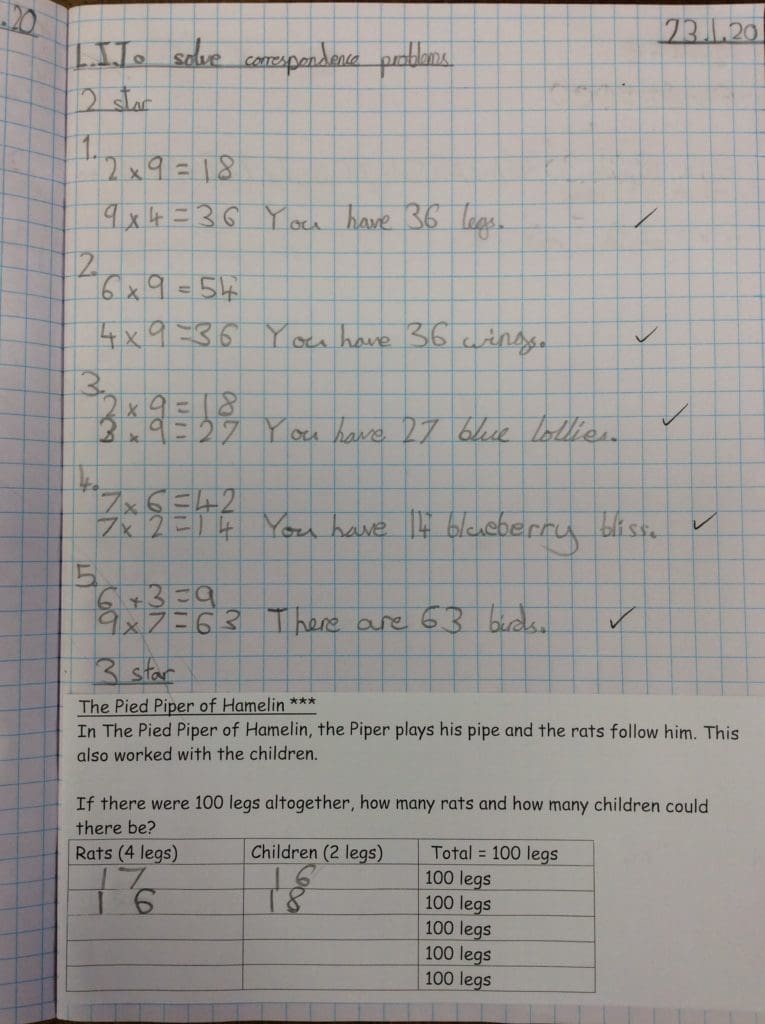 .20
23.1.20
L.I.To solve correspondence problems
2 star
1.
2 x 9 = 18
9 x 4 = 36 You have 36 legs.
2.
6 x 9 = 54
4 x 9 = 36 You have 36 wings.
3.
2 x 9 = 18
3 x 9 = 27 You have 27 blue lollies.
4.
7 x 6 = 42
7 x 2 = 14 You have 14 blueberry bliss.
5.
6 + 3 = 9
9 x 7 = 63 There are 63 birds.
3 star
The Pied Piper of Hamelin ***
In The Pied Piper of Hamelin, the Piper plays his pipe and the rats follow him. This
also worked with the children.
If there were 100 legs altogether, how many rats and how many children could
there be?
Rats (4 legs) Children (2 legs) Total = 100 legs
17 16 100 legs
16 18 100 legs
100 legs
100 legs
100 legs